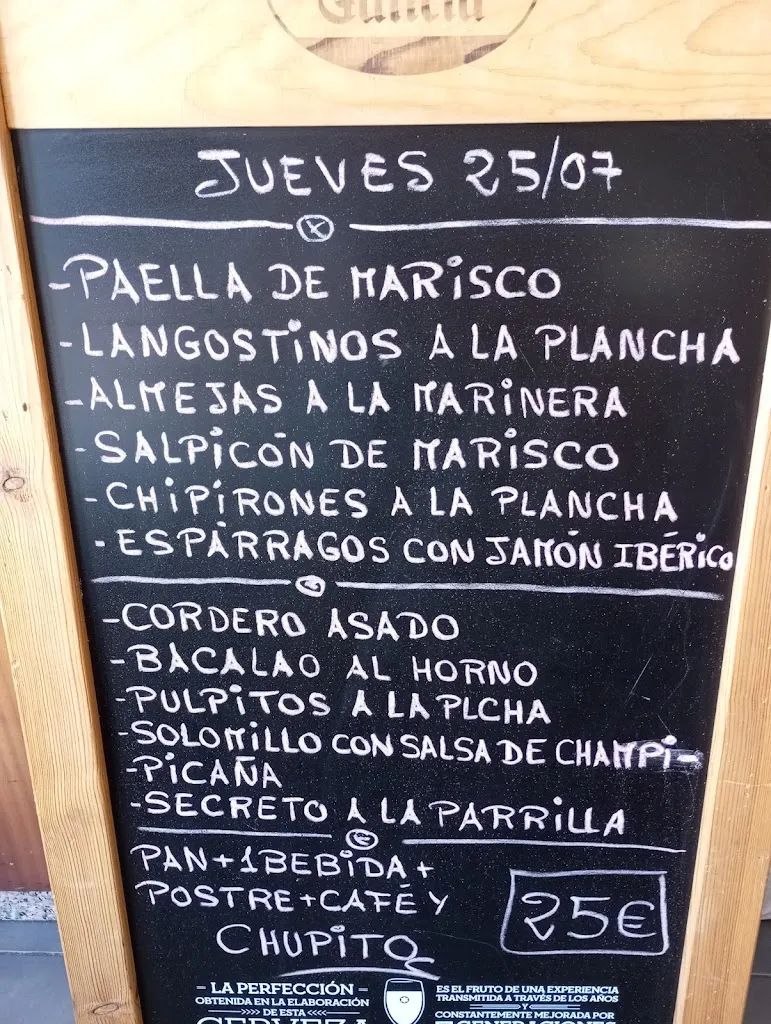 Galicia
JUEVES 25/07
-PAELLA DE MARISCO
-LANGOSTINOS A LA PLANCHA
-ALMEJAS A LA MARINERA
-SALPICÓN DE MARISCO
-CHIPIRONES A LA PLANCHA
-ESPÁRRAGOS CON JAMÓN IBÉRICO
-CORDERO ASADO
-BACALAO AL HORNO
-PULPITOS A LA PLCHA
-SOLOMILLO CON SALSA DE CHAMPI-
-PICAÑA
-SECRETO A LA PARRILLA
PAN+1BEBIDA+
POSTRE+CAFÉ Y
CHUPITO
25€
– LA PERFECCIÓN –
OBTENIDA EN LA ELABORACIÓN
DE ESTA
CERVEZA
ES EL FRUTO DE UNA EXPERIENCIA
TRANSMITIDA A TRAVÉS DE LOS AÑOS
Y
CONSTANTEMENTE MEJORADA POR
GENERACIONES